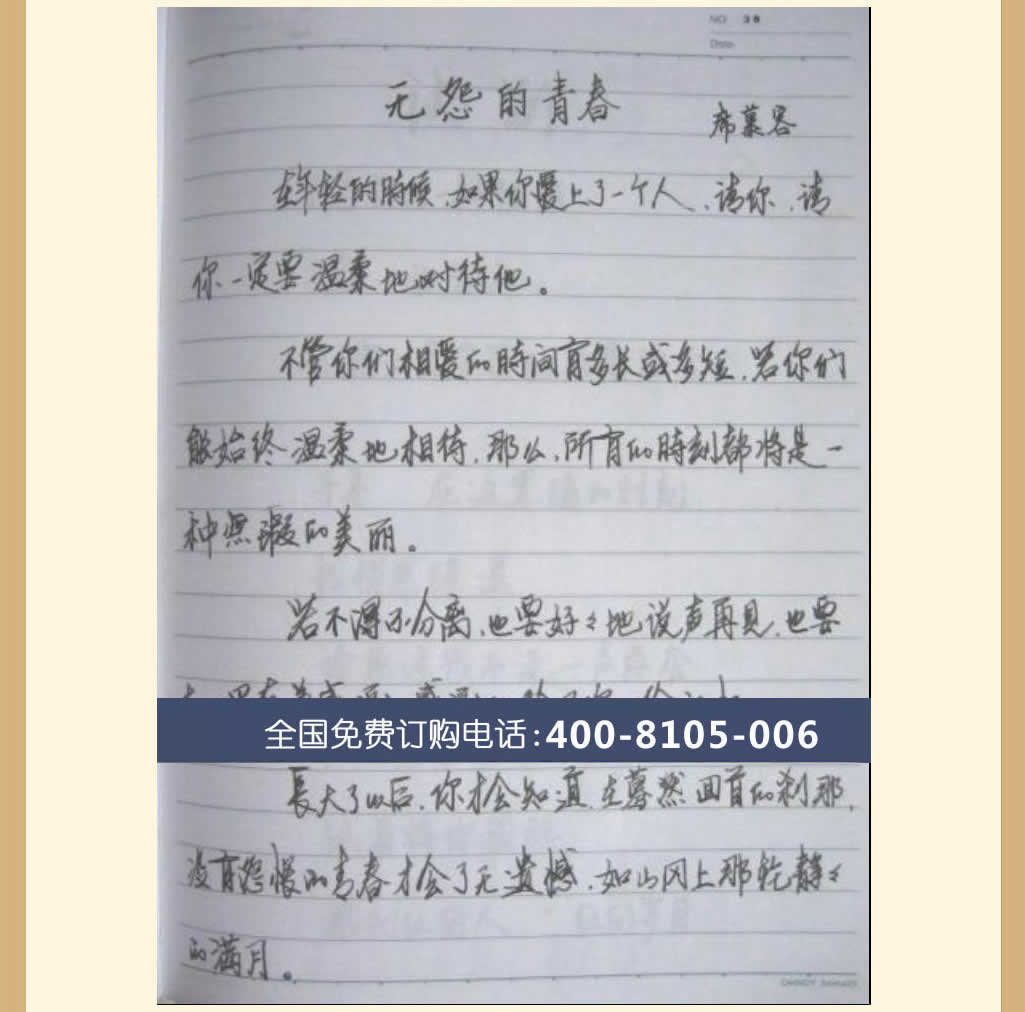 NO 38
Date
无怨的青春
席慕容
在年轻的時候,如果你愛上了一个人,请你,请
你一定要温柔地对待他。
不管你们相愛的時间有多长或多短,若你们
能始终温柔地相待,那么,所有的時刻都将是一
种無瑕的美丽。
若不得不分离,也要好々地说声再見,也要
全国免费订购电话:400-8105-006
長大了以后,你才会知道,在蓦然回首的刹那,
没有怨恨的青春才会了无遗憾,如山冈上那轮静々
的满月。